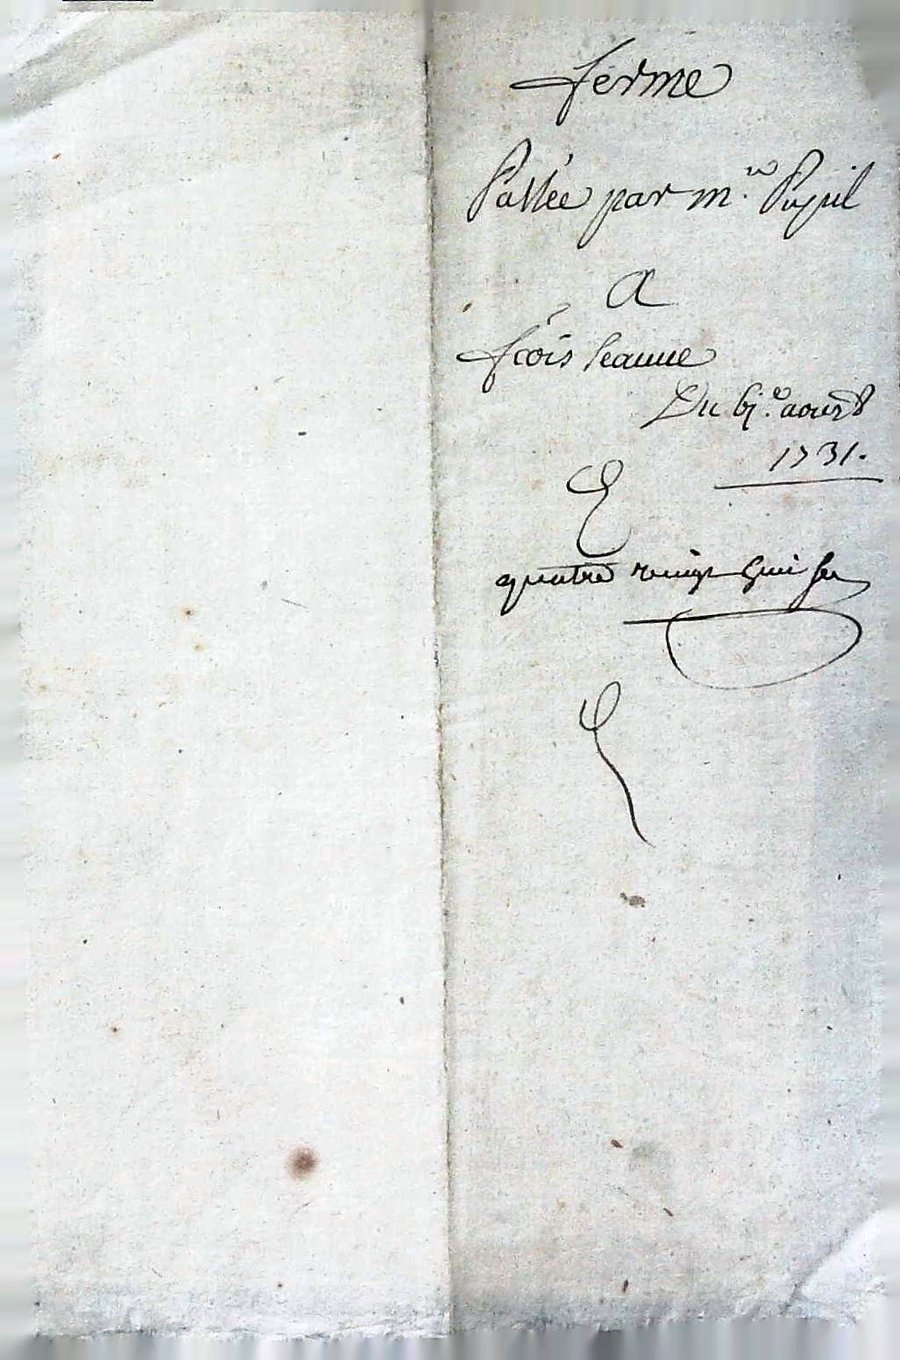 ferme
Passée par mr. Pupil
A
fcois Jeanne
Du 6je. aoust
1731.
E
quatre vingt quinse